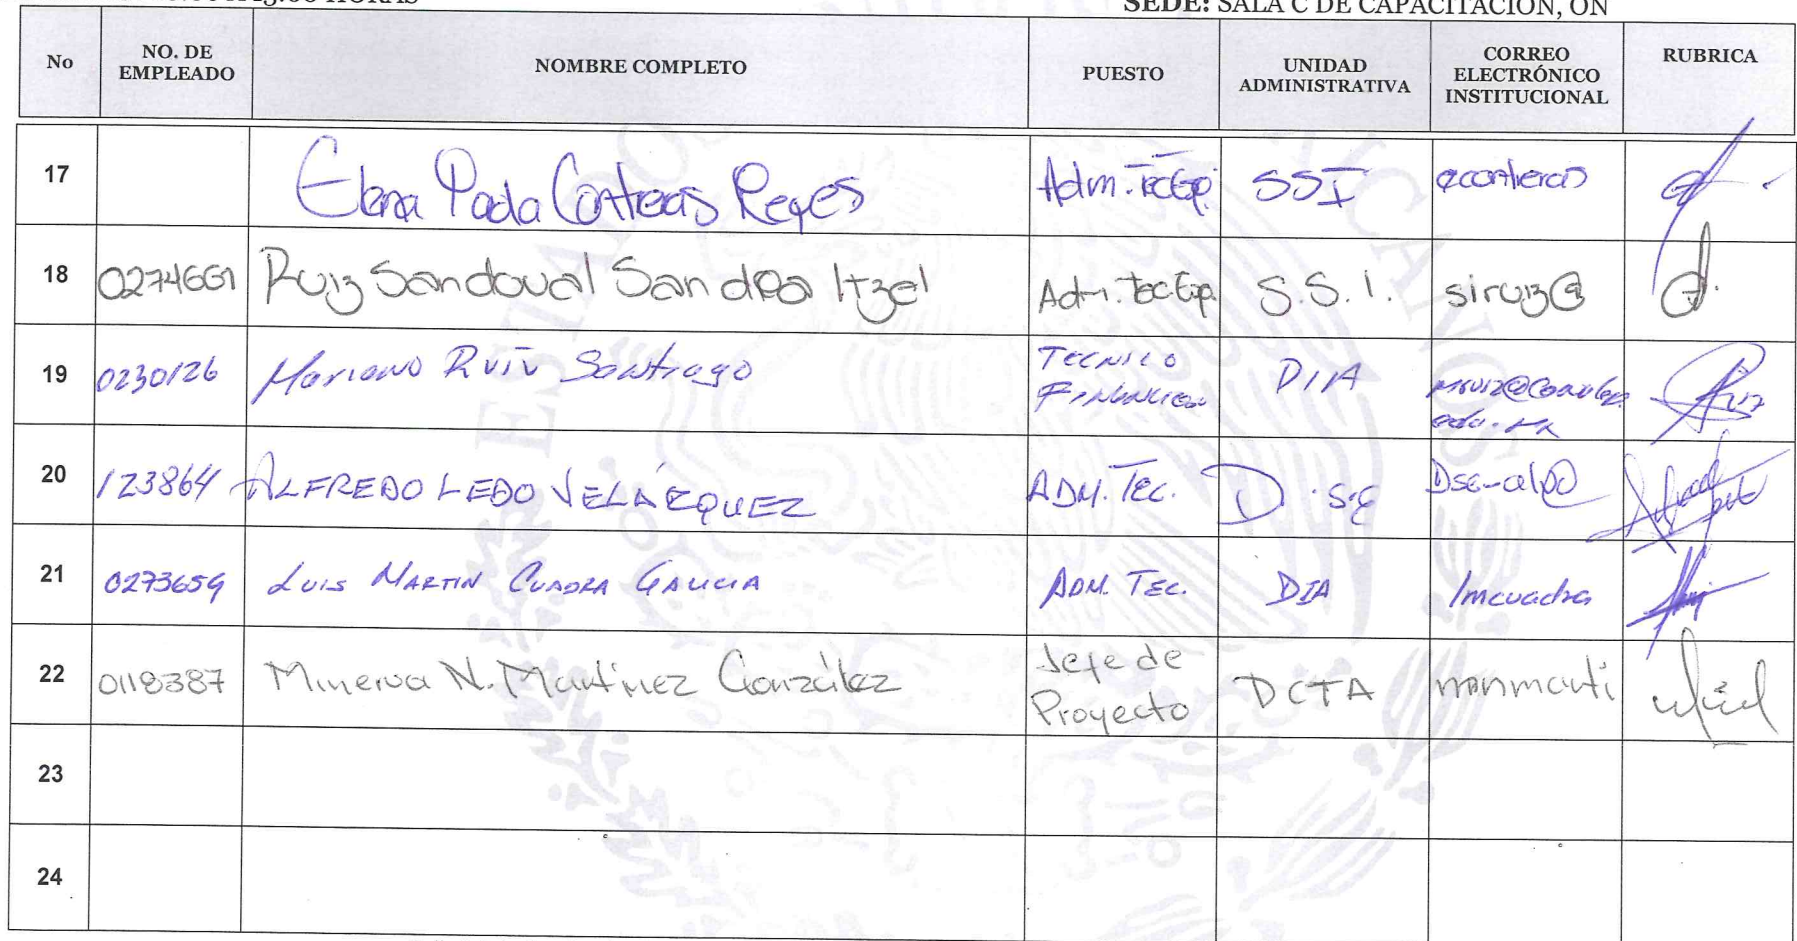 HORAS
SEDE: SALA C DE CAPACITACIÓN, ON
No NO. DE EMPLEADO NOMBRE COMPLETO PUESTO UNIDAD ADMINISTRATIVA CORREO ELECTRÓNICO INSTITUCIONAL RUBRICA
17 Elena Paola Contreras Reyes Adm. Tec Esp. SSI econtreras
18 Ruiz Sandoval Sandra Itzel Adm. Tec. Esp. S.S.I. siruiz@
19 0230126 Mariano Ruiz Santiago TECNICO FINANCIERO DIA
20 123864 ALFREDO LEDO VELÁZQUEZ ADM. TEC. D.SE Dse-alp@
21 0273659 LUIS MARTIN CUADRA GARCIA ADM. TEC. DIA lmcuadra
22 0118387 Minerva N. Martínez González Jefe de Proyecto DCTA
23
24
ESTADOS